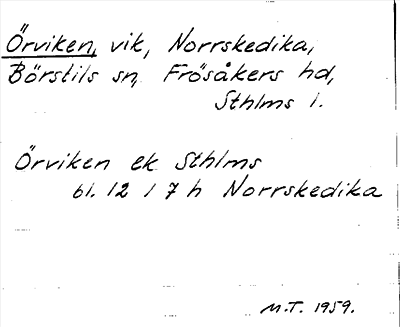 Örviken, vik, Norrskedika,
Börstils sn, Frösåkers hd,
Sthlms l.
Örviken ek Sthlms
bl. 12 I 7 h Norrskedika
M.T. 1959.